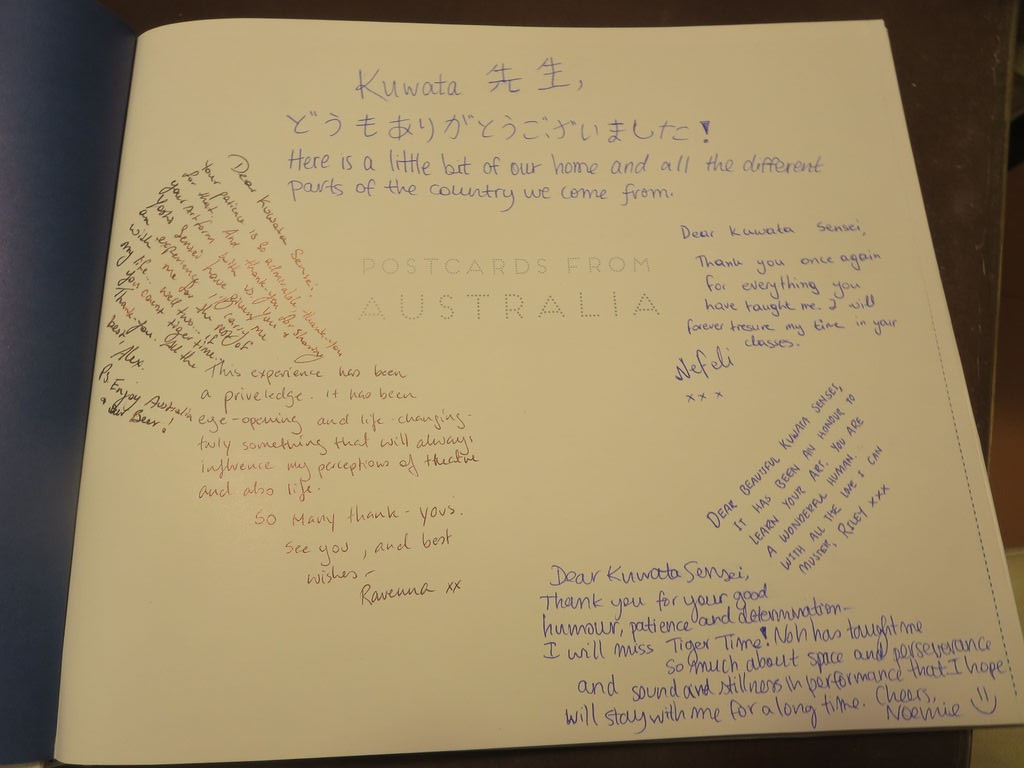 Kuwata 先生,
どうもありがとうございました!
Here is a little bit of our home and all the different
parts of the country we come from.
POSTCARDS FROM
AUSTRALIA
Dear Kuwata Sensei,
Your patience is so admirable thank-you
for that. And thank-you for sharing
your artform with us. You &
Yoshi Sensei have given me
an experience I'll carry
with me for the rest of
my life... well two... if
you count tiger time.
Thank-you. All the
best, Alex.
Ps Enjoy Australia
& Beer!
This experience has been
a priveledge. it has been
eye-opening and life-changing-
truly something that will always
influence my perceptions of theatre
and also life.
So Many thank-yous.
See you, and best
wishes-
Ravenna xx
Dear Kuwata Sensei,
Thank you once again
for everything you
have taught me. I will
forever tresure my time in your
classes.
Nefeli
x x x
DEAR BEAUTIFUL KUWATA SENSEI,
IT HAS BEEN AN HONOUR TO
LEARN YOUR ART. YOU ARE
A WONDERFUL HUMAN.
WITH ALL THE LOVE I CAN
MUSTER, RILEY XXX
Dear Kuwata Sensei,
Thank you for your good
humour, patience and determination-
I will miss Tiger Time! Noh has taught me
so much about space and perseverance
and sound and stillness in performance that I hope
will stay with me for a long time. Cheers,
Noemie